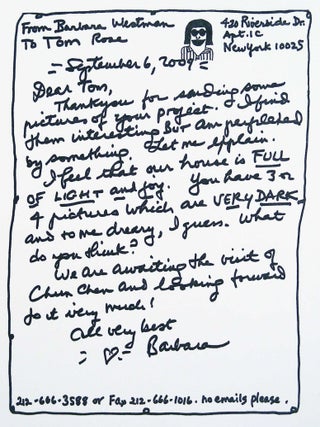 From Barbara Westman
To Tom Rose
420 Riverside Dr.
Apt. 1C
New York 10025
September 6, 2007
Dear Tom,
Thank you for sending some
pictures of your project. I find
them interesting BUT am perplexed
by something. Let me explain.
I feel that our house is FULL
OF LIGHT and joy. You have 3 or
4 pictures which are VERY DARK
and to me dreary, I guess. What
do you think?
We are awaiting the visit of
Chun Chen and looking forward
to it very much!
All very best
Barbara
212-666-3588 or Fax 212-666-1016. no emails please.